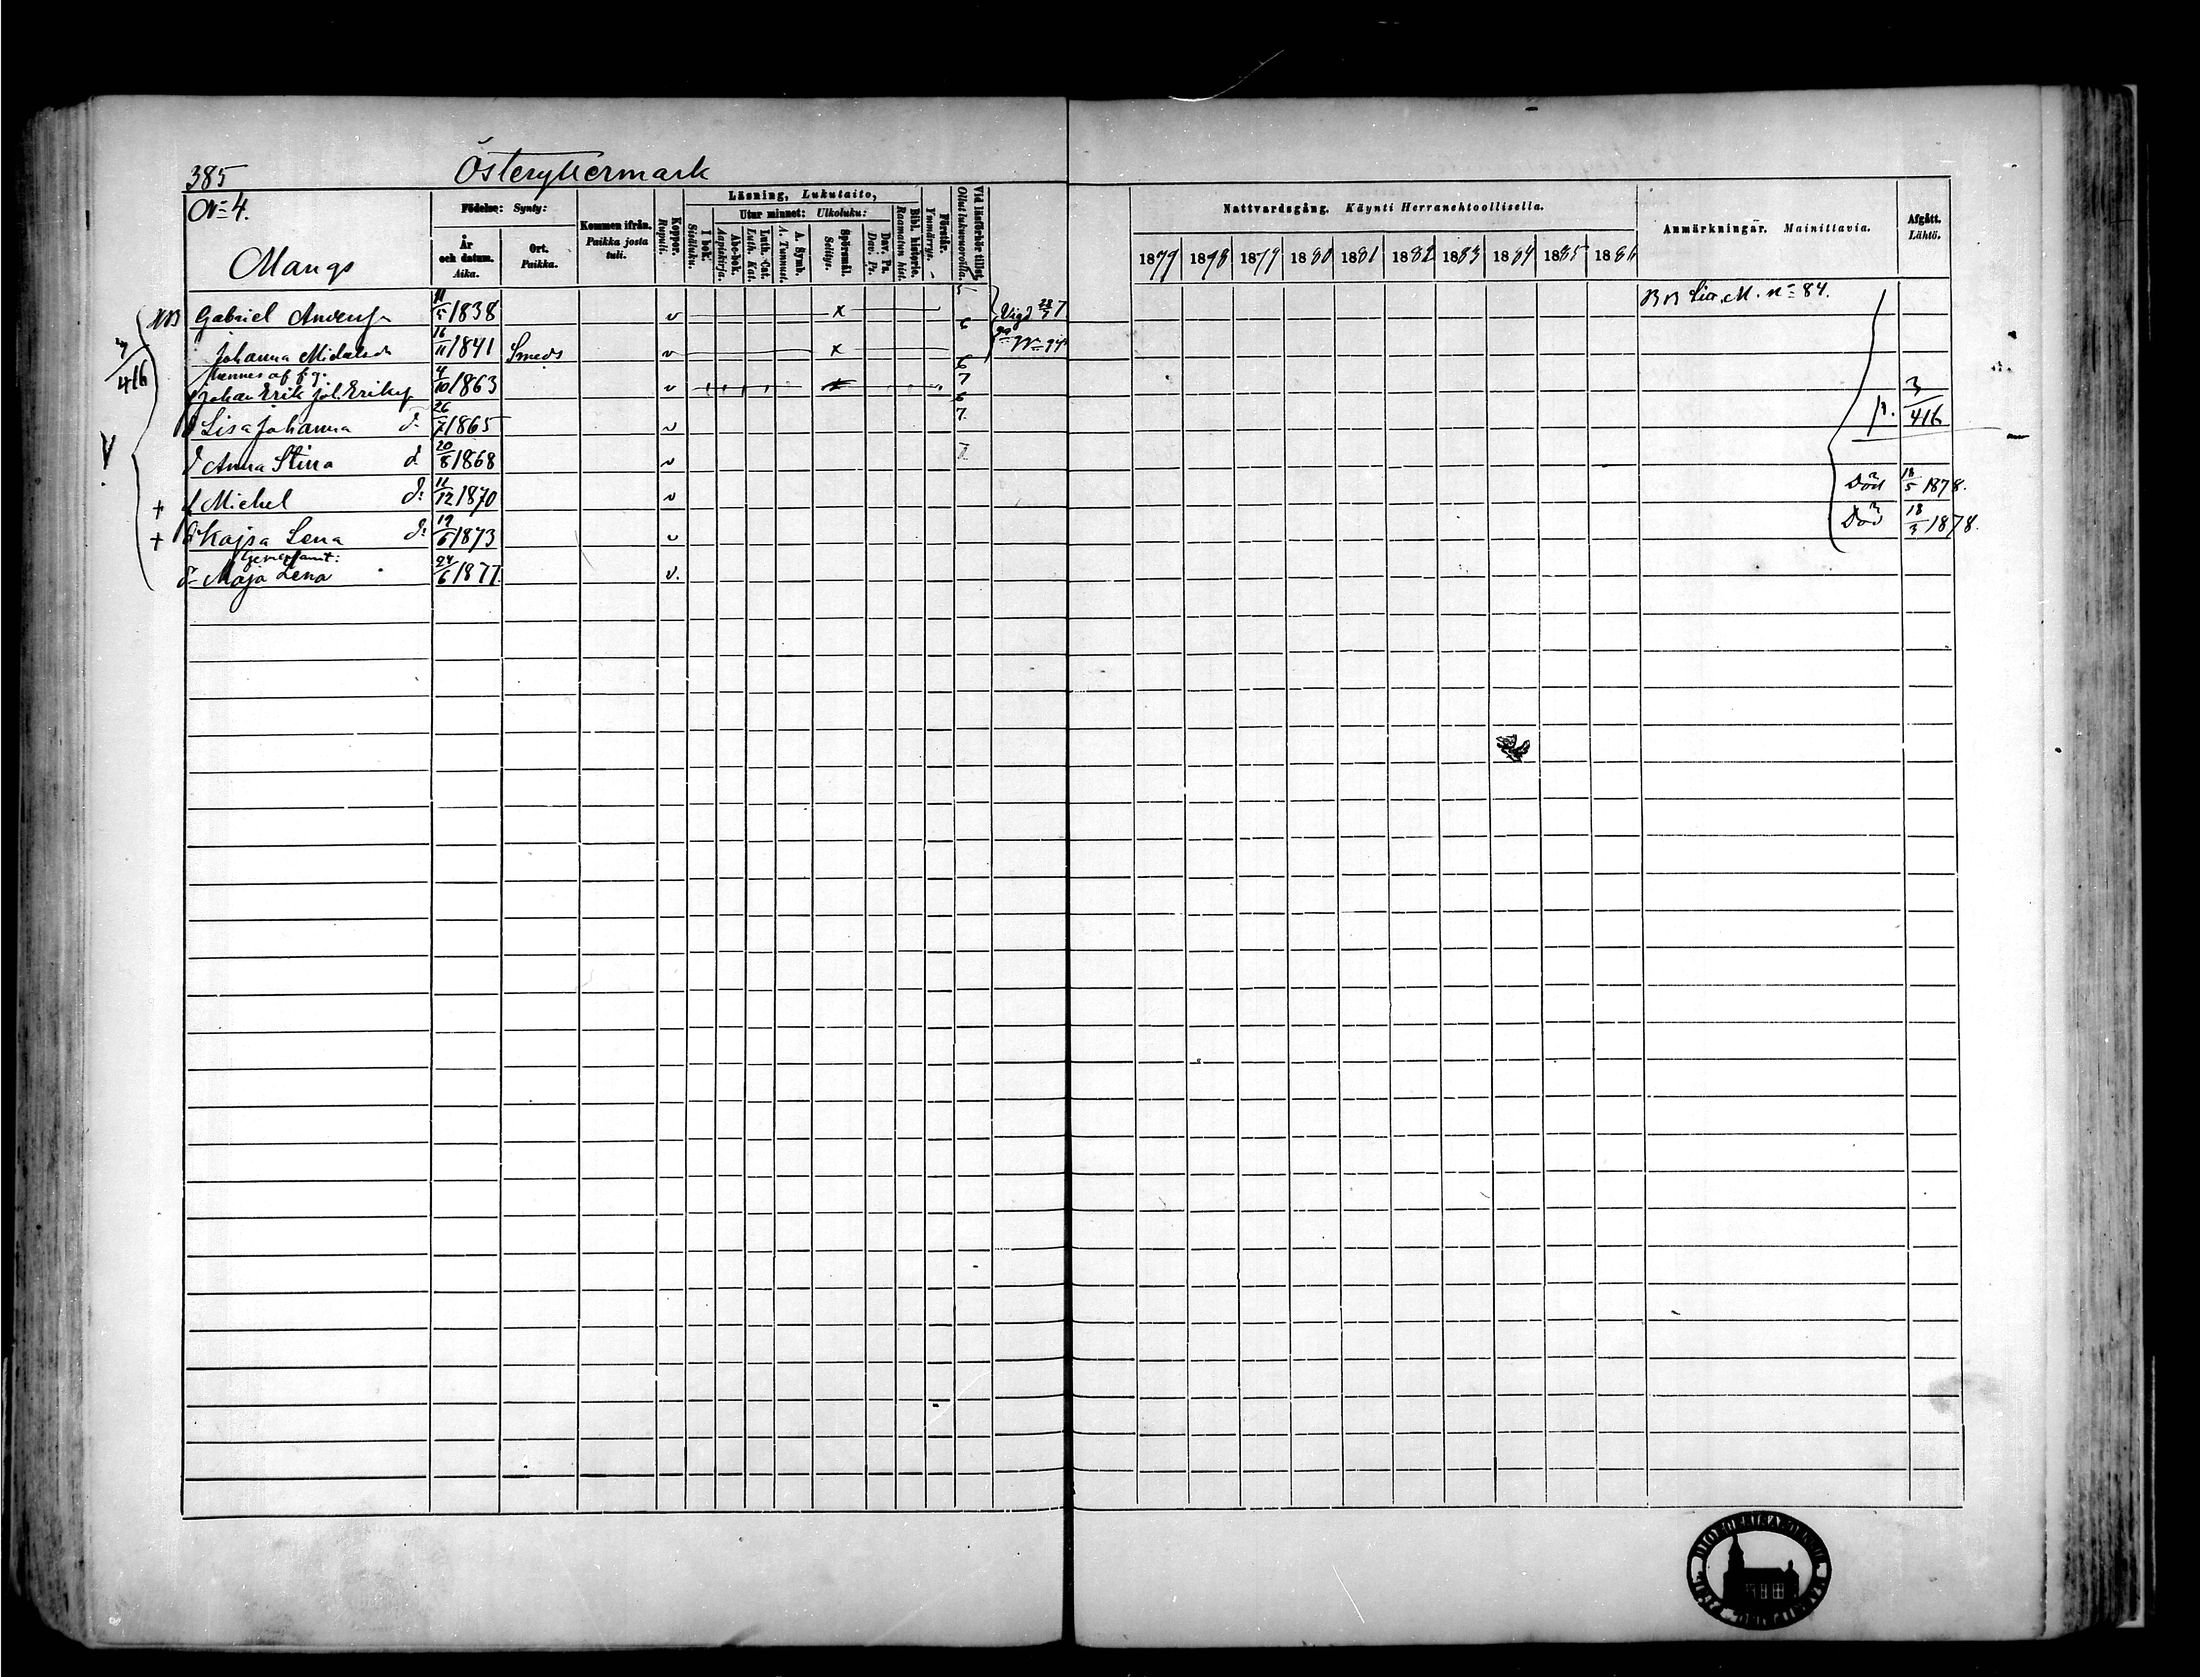 385 Österyttermark
No 4.
Mangs
Födelse: Synty:
År och datum. Aika.
Ort. Paikka.
Kommen ifrån. Paikka josta tuli.
Koppor. Rupuli.
Läsning, Lukutaito,
I bok. Sisäluku.
Utur minnet: Ulkoluku:
Abc-bok. Aapiskirja.
Luth. Cat. Luth. Kat.
A. Symb. A. Tunnust.
Spörsmål. Selitys.
Dav. Ps. Dav. Ps.
Bibl. historie. Raamatun hist.
Förstår. Ymmärrys.
Vid läsförhör tillst. Ollut lukuvuorolla.
Nattvardsgång. Käynti Herranehtoollisella.
1877 1878 1879 1880 1881 1882 1883 1884 1885 1886
Anmärkningar. Mainittavia.
Afgått. Lähtö.
NB Gabriel Andersf 11/5 1838 v x 5 Vigd 28/7 NB Lisa M. No 84.
Johanna Michelsd 16/11 1841 Smeds v x 6
Hennes af f.g.
Johan Erik Joh. Eriksf 4/10 1863 v 7 3/416
d Lisa Johanna d:o 26/7 1865 v 7.
d Anna Stina d 20/8 1868 v
+ d Michel d: 11/12 1870 v Död 18/5 1878.
+ d Kajsa Lena d: 19/6 1873 v Död 18/3 1878.
d Maja Lena 24/6 1877 v.
7/416